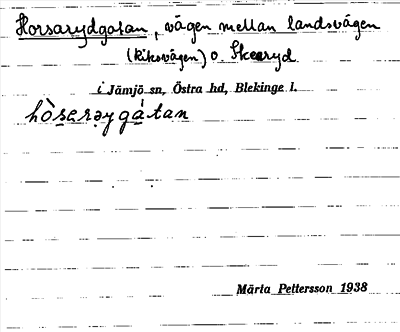 Horsarydgatan, vägen mellan landsvägen
(Riksvägen) o. Skearyd
i Jämjö sn, Östra hd, Blekinge l.
hòsarəygátan
Märta Pettersson 1938